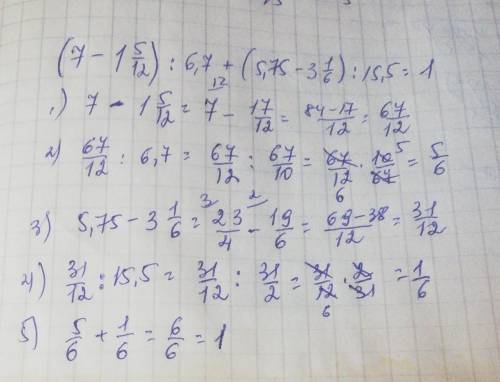 (7 - 1 5/12) : 6,7 + (5,75 - 3 1/6) : 15,5 = 1
1) 7 - 1 5/12 = 7 - 17/12 = 84-17/12 = 67/12
2) 67/12 : 6,7 = 67/12 : 67/10 = 67/12 · 10/67 = 5/6
3) 5,75 - 3 1/6 = 23/4 - 19/6 = 69-38/12 = 31/12
4) 31/12 : 15,5 = 31/12 : 31/2 = 31/12 · 2/31 = 1/6
5) 5/6 + 1/6 = 6/6 = 1